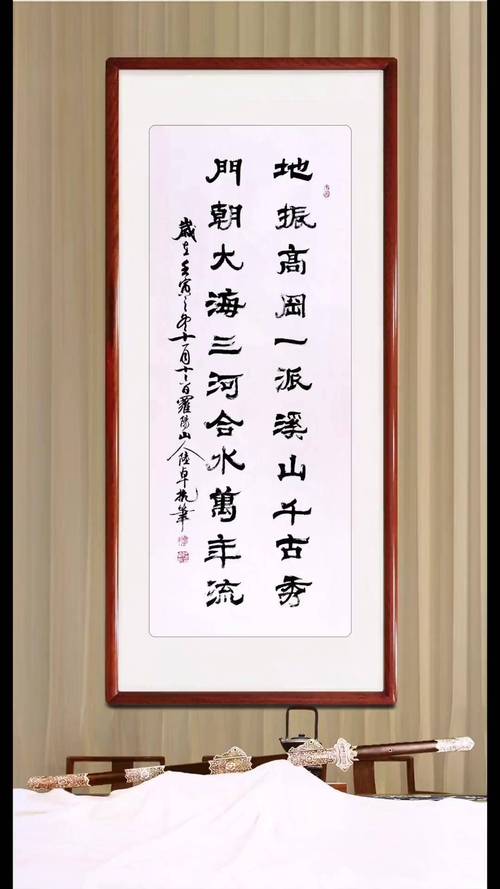 地振高岡一派溪山千古秀
門朝大海三河合水萬年流
歲在壬寅之年十一月十二日羅陽山人陸卓執筆